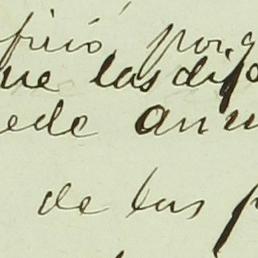 firió, porq
ue las dif
ede anu
de las p